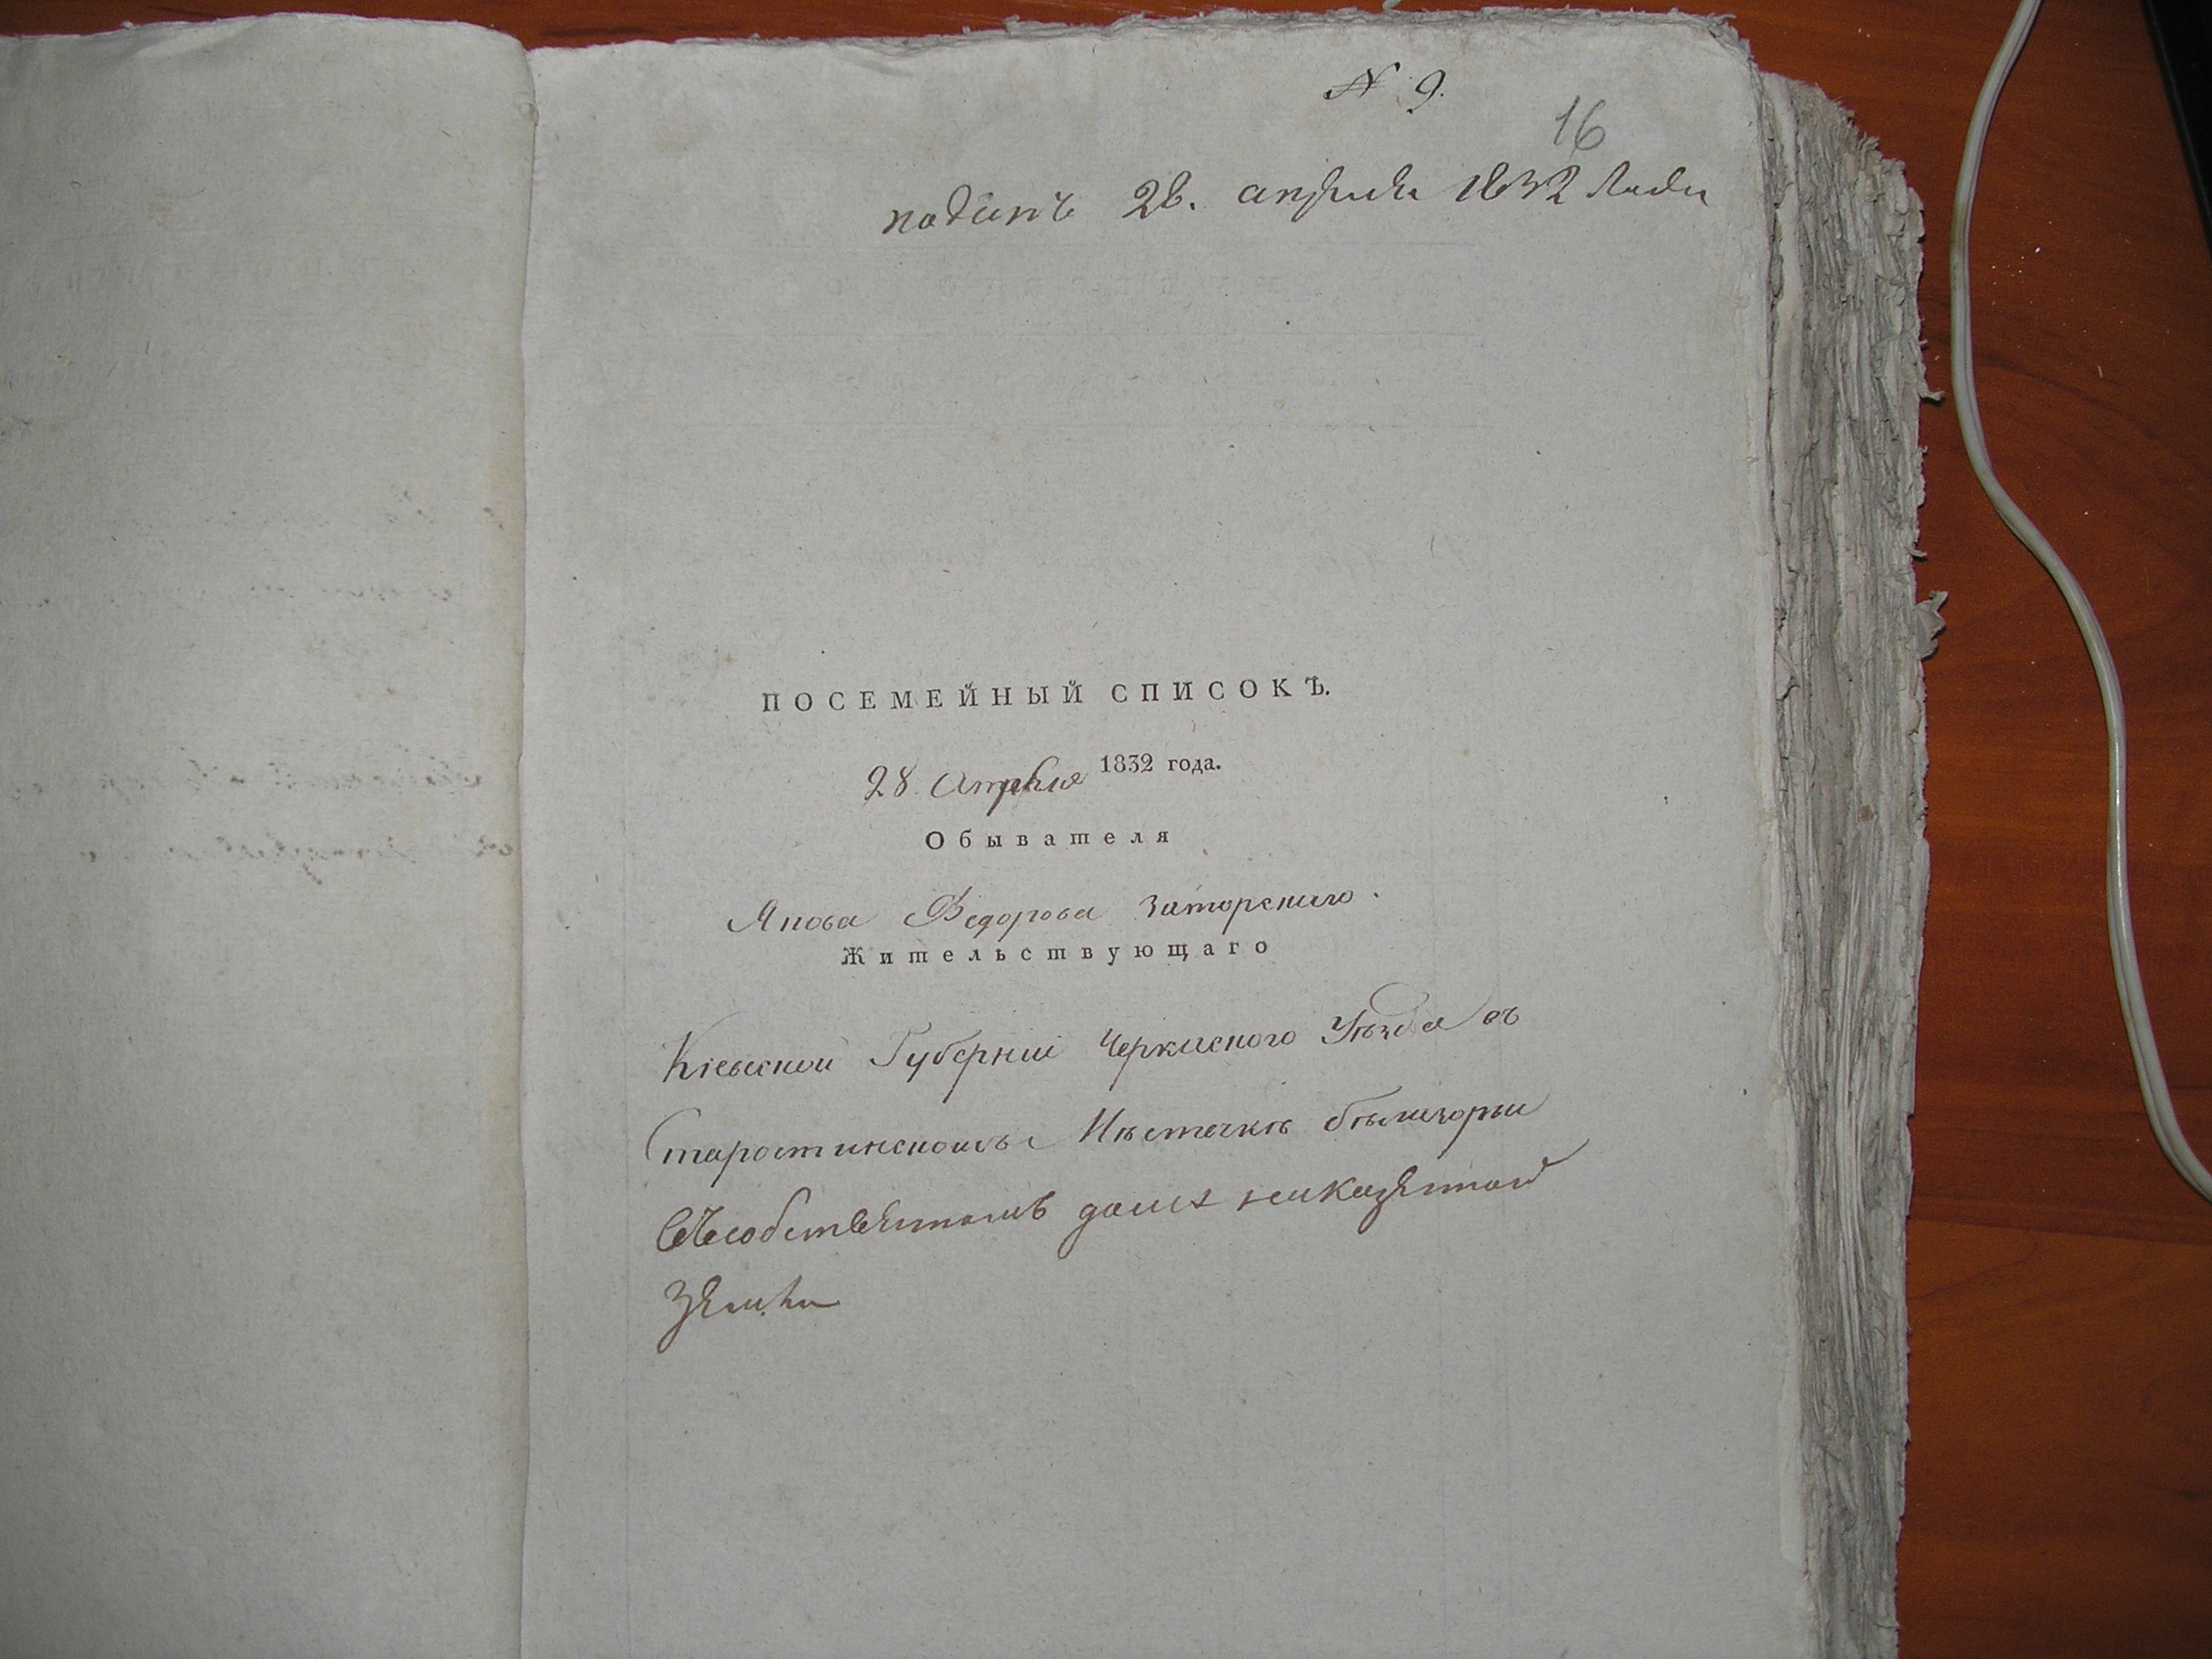 N 9.
16
поданъ 28. апреля 1832 года
ПОСЕМЕЙНЫЙ СПИСОКЪ.
28 Апреля 1832 года.
Обывателя
Якова Федорова Заторского.
Жительствующаго
Кіевской Губерніи Черкаского Уѣзда въ
Старостинскомъ Мѣстечкѣ Бѣлизоръи
Въсобственомъ доме наказеной
Земли